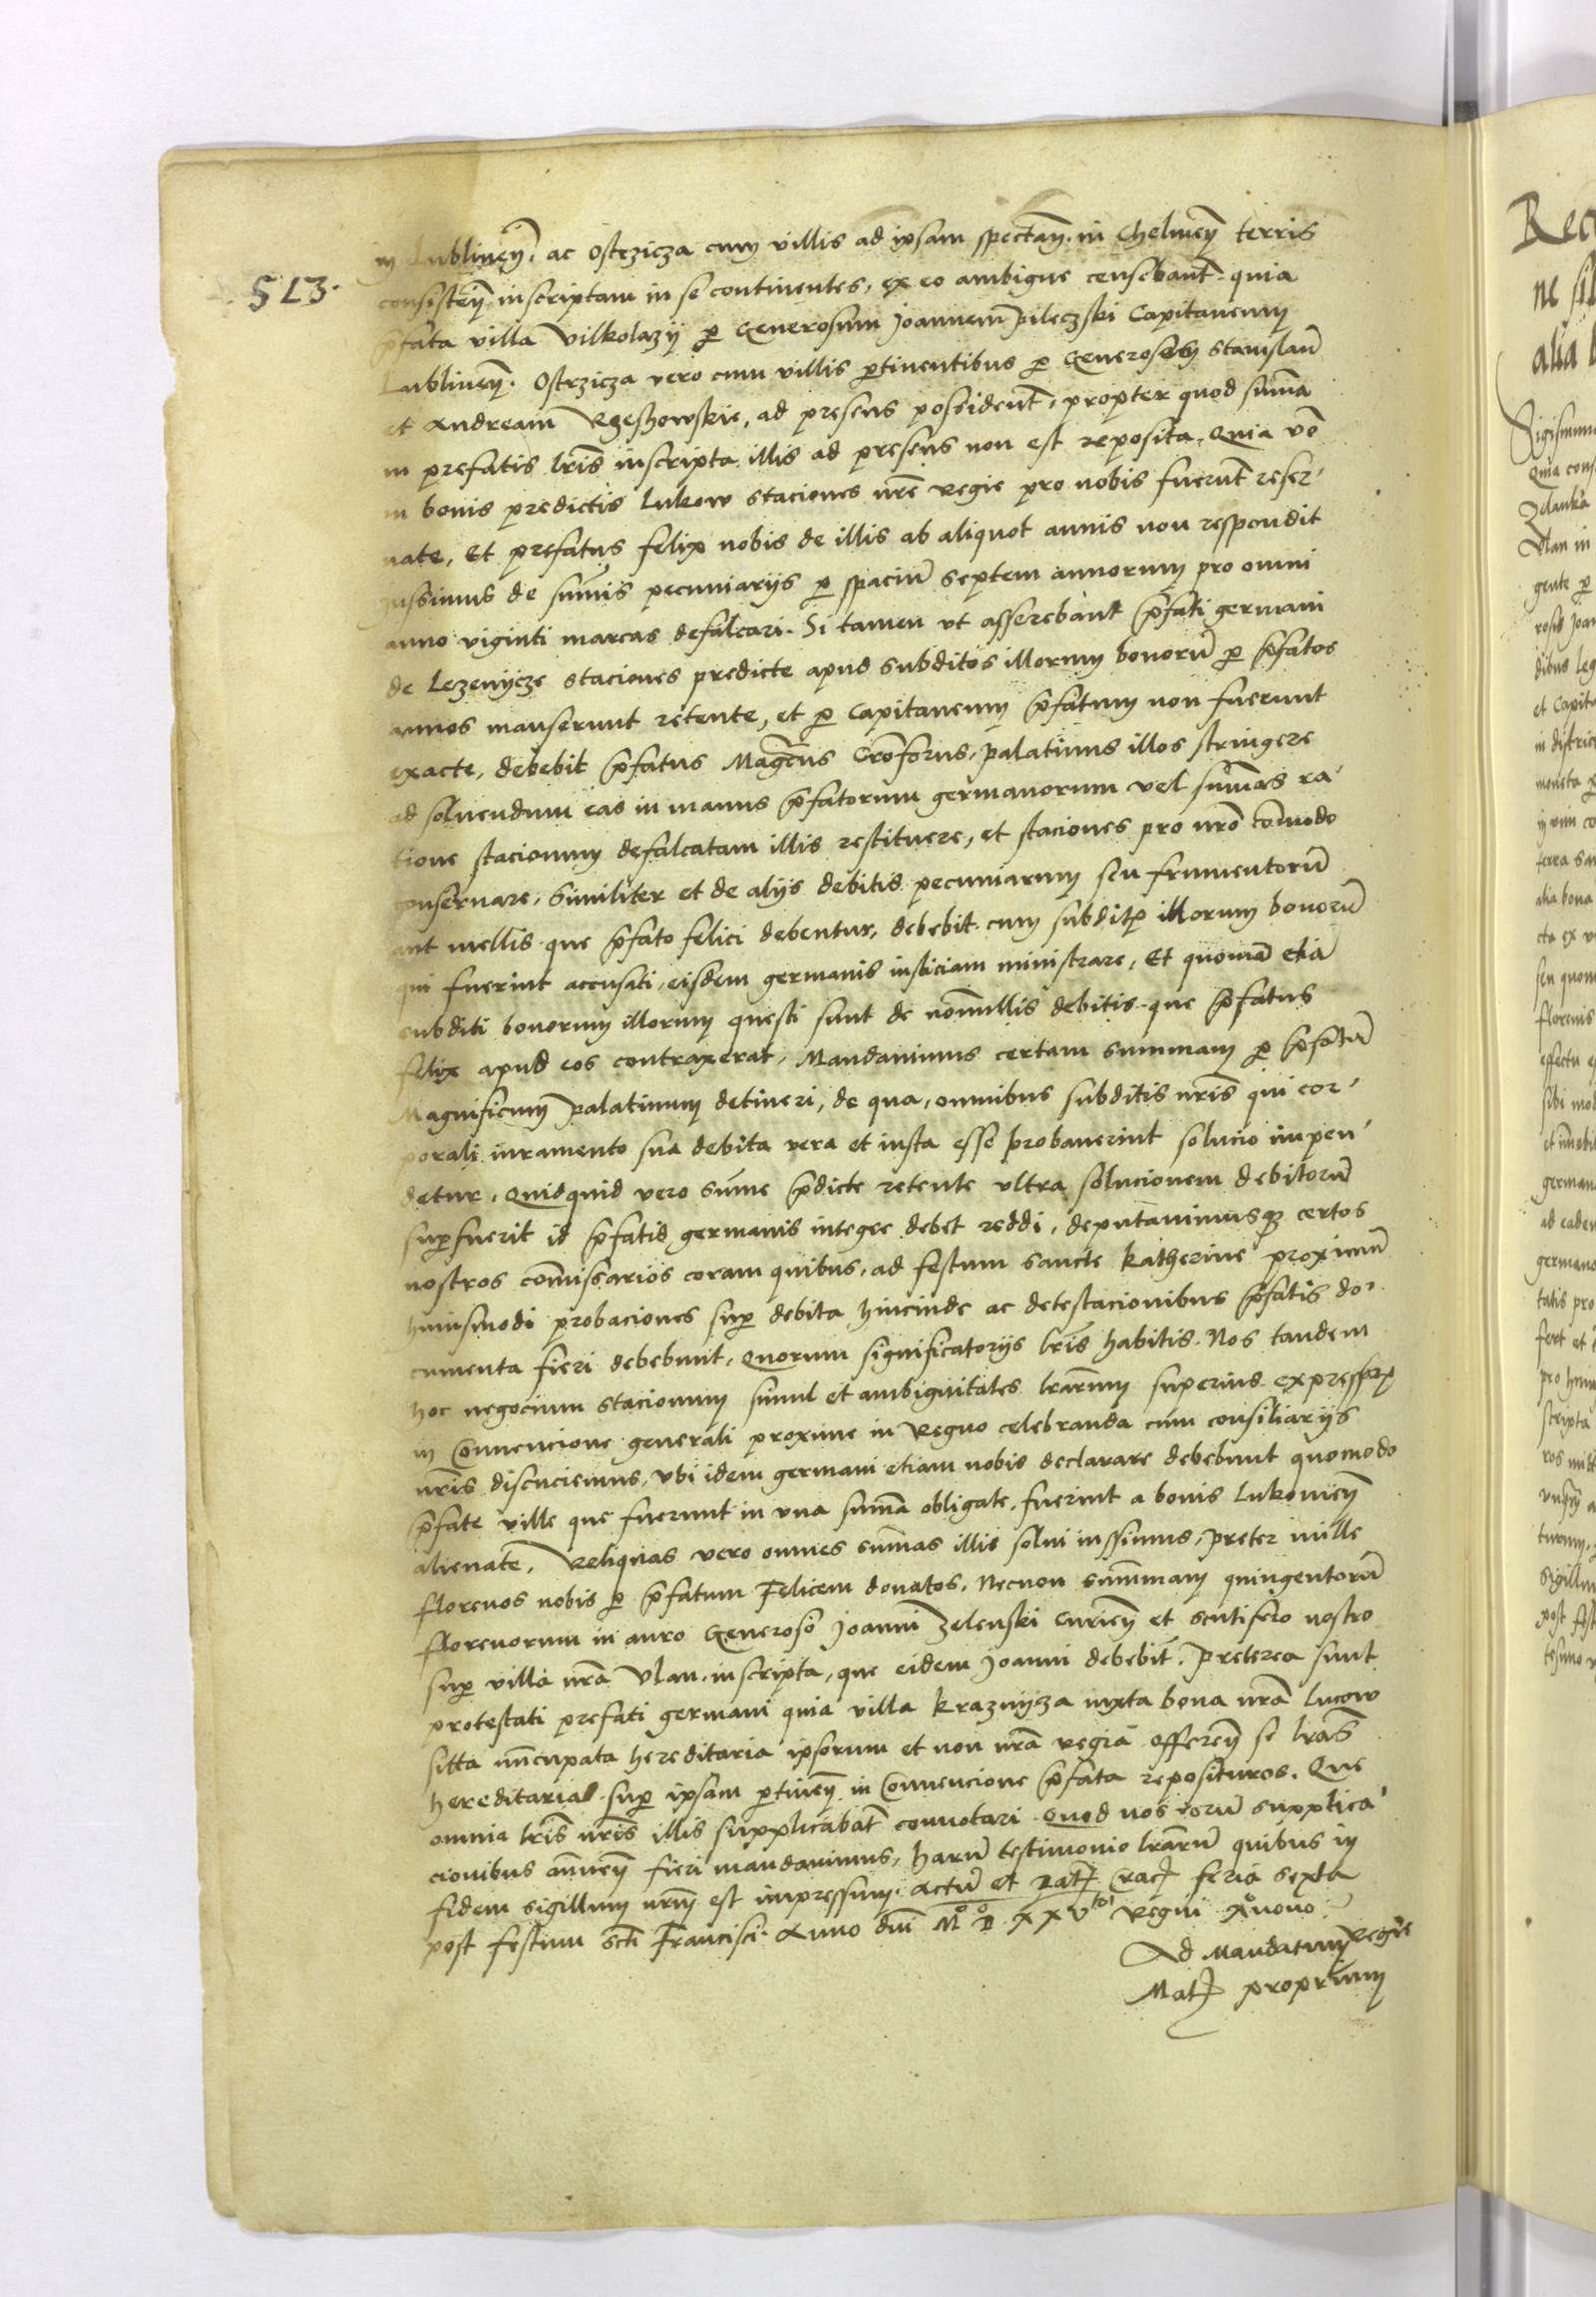 513.
in Lublineñ. ac Ostrzicza cum villis ad ipsam spectañ. in Chelmeñ terris
consisteñ. inscriptam in se continentes, ex eo ambigue censebant̃. quia
p̃fata villa Vilkolazij p Generosum Joannem pileczski Capitaneum
Lublineñ. Ostrzicza vero cum villis ptinentibus p Generosum stanislaũ
et Andream Rzeshowskie, ad presens possident̃, propter quod sum̃a
in prefatis lr̃is inscripta illis ad presens non est reposita, Quia vo
in bonis predictis Lukow staciones nr̃e regie pro nobis fuerunt reser-
uate, Et prefatus felix nobis de illis ab aliquot annis non respondit
iussimus de sum̃is pecuniarijs p spaciũ septem annorum pro omni
anno viginti marcas defalcari. Si tamen vt asserebant p̃fati germani
de Lezenijcze staciones predicte apud subditos illorum bonorũ p p̃fatos
annos manserunt retente, et p Capitaneum p̃fatum non fuerunt
exacte, debebit p̃fatus Mag̃cus Cr̃oforus, palatinus illos stringere
ad soluendum eas in manus p̃fatorum germanorum vel sum̃as ra-
tione stacionum defalcatam illis restituere, et staciones pro nr̃o com̃odo
conseruare, Similiter et de alijs debitis pecuniarum seu frumentorũ
aut mellis que p̃fato felici debentur, debebit cum subditis illorum bonorũ
qui fuerint accusati, eisdem germanis iusticiam ministrare, Et quoniã etiã
subditi bonorum illorum questi sunt de nonnullis debitis que p̃fatus
felix apud eos contraxerat, Mandauimus certam summam p p̃fatũ
Magnificum palatinum detineri, de qua, omnibus subditis nr̃is qui cor-
porali iuramento sua debita vera et iusta esse probauerint solucio impen-
detur, Quidquid vero sum̃e p̃dicte retente vltra solucionem debitorũ
supfuerit id p̃fatis germanis integre debet reddi, deputauimusq certos
nostros com̃issarios coram quibus, ad festum sancte Katherine proximũ
huiusmodi probaciones sup debita hincinde ac detestacionibus p̃fatis do-
cumenta fieri debebunt, Quorum significatorijs lr̃is habitis. Nos tandem
hoc negocium stacionum simul et ambiguitates lr̃arum superius expressarum
in Conuencione generali proxime in Regno celebranda cum consiliarijs
nr̃is discuciemus, vbi idem germani etiam nobis declarare debebunt quomodo
p̃fate ville que fuerunt in vna sum̃a obligate, fuerint a bonis Lukouieñ
alienate, Reliquas vero omnes sum̃as illis solui iussimus, preter mille
florenos nobis p p̃fatum Felicem donatos, Necnon summam quingentorũ
florenorum in auro Generoso Joanni Zelenski Curieñ et scutifero nostro
sup villa nr̃a Vlan inscripta, que eidem Joanni debebit̃. Preterea sunt
protestati prefati germani quia villa Kraznijza iuxta bona nr̃a Lucow
sitta nũcupata hereditaria ipsorum et non nr̃a regia offereñ se lr̃as
hereditarias sup ipsam ptineñ in Conuencione p̃fata reposituros. Que
omnia lr̃is nr̃is illis supplicabãt connotari Quod nos eorũ supplica-
cionibus annueñ fieri mandauimus, harũ testimonio lr̃arũ quibus in
fidem sigillum nr̃m est impressum. Actũ et Dat̃ Crac̃ feria sexta
post festum sct̃i Francisci. Anno dñi M° D XXVto Regni Xnono
Ad Mandatum Regie
Mat̃ proprium